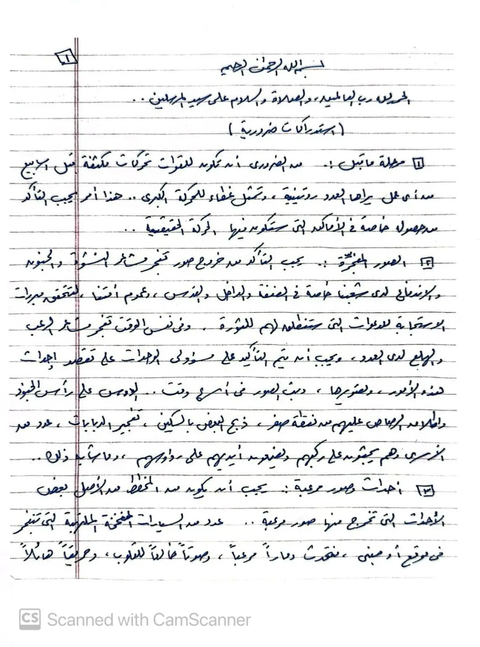 ١
بسم الله الرحمن الرحيم
الحمد لله رب العالمين، والصلاة والسلام على سيد المرسلين ..
(استدراكات ضرورية)
١ مرحلة ما قبل :. من الضروري أن تكون للقوات تحركات مكثفة قبل أسابيع
من أي عمل يراها العدو روتينية، وتمثل غطاء للحركة الكبرى .. هذا أمر يجب التأكد
من حصوله خاصة في الأماكن التي ستكون فيها الحركة الحقيقية ..
٢ الصور المفجّرة :. يجب التأكد من خروج صور تفجر مشاعر النشوة والجنون
والاندفاع لدى شعبنا خاصة في الضفة والداخل والقدس، وعموم أمتنا، لتتحقق مبررات
الاستجابة للدعوات التي ستنطلق لهم للثورة . وفي نفس الوقت تفجر مشاعر الرعب
والهلع لدى العدو، ويجب أن يتم التأكيد على مسؤولي الوحدات على تقصد إحداث
هذه الأمور، وتصويرها، وبث الصور في أسرع وقت .. الدوس على رأس الجنود
وإطلاق الرصاص عليهم من نقطة صفر، ذبح البعض بالسكين، تفجير الدبابات، عدد من
الأسرى وهم يجثون على ركبهم ويضعون أيديهم على رؤوسهم، وما شابه ذلك ..
٣ أحداث وصور مرعبة :. يجب أن يكون من المخطط من الأصل بعض
الأحداث التي تخرج منها صور مرعبة .. عدد من السيارات المفخخة التي تنفجر
في موقع أو مبنى، فتحدث دماراً مرعباً، وصوتاً خالعاً للقلوب، وحريقاً هائلاً
CS Scanned with CamScanner